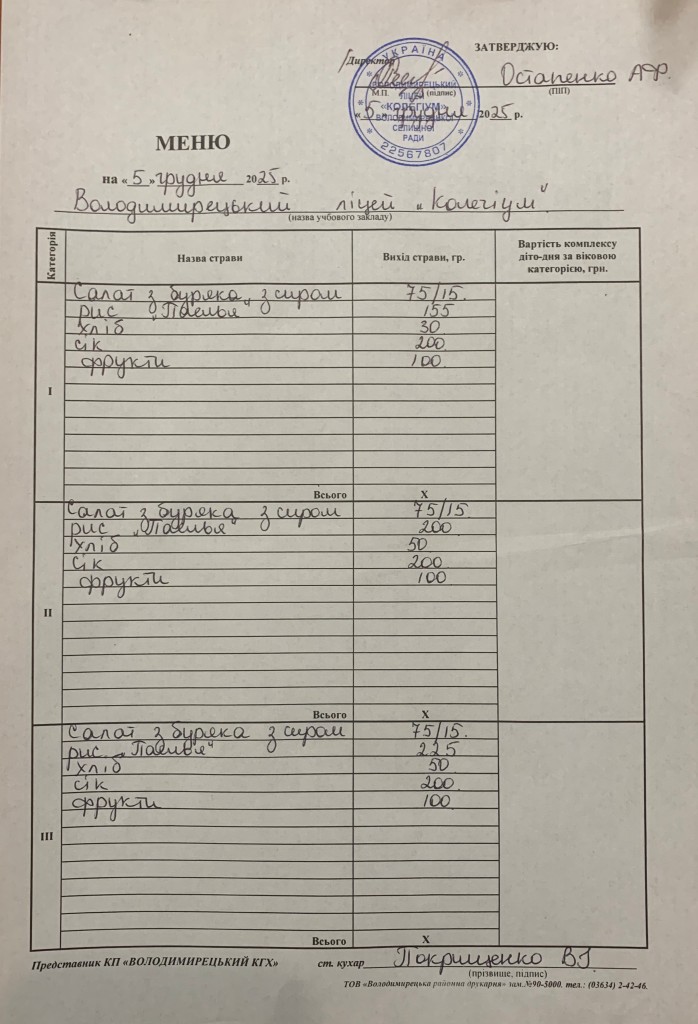 ЗАТВЕРДЖУЮ:
Директор Остапенко А.Ф.
М.П. (підпис) (ПІП)
« 5 » грудня 2025 р.
УКРАЇНА
ВОЛОДИМИРЕЦЬКИЙ
ЛІЦЕЙ
«КОЛЕГІУМ»
СЕЛИЩНОЇ
РАДИ
22567807
МЕНЮ
на « 5 » грудня 2025 р.
Володимирецький ліцей „Колегіум"
(назва учбового закладу)
Категорія Назва страви Вихід страви, гр. Вартість комплексу діто-дня за віковою категорією, грн.
I
Салат з буряка з сиром 75/15.
рис „Паелья" 155
хліб 30
сік 200
фрукти 100
Всього X
II
Салат з буряка з сиром 75/15.
рис „Паелья" 200
хліб 50
сік 200
фрукти 100
Всього X
III
Салат з буряка з сиром 75/15.
рис „Паелья" 225
хліб 50
сік 200
фрукти 100
Всього X
Представник КП «ВОЛОДИМИРЕЦЬКИЙ КГХ» ст. кухар Покрищенко ВГ
(прізвище, підпис)
ТОВ «Володимирецька районна друкарня» зам.№90-5000. тел.: (03634) 2-42-46.